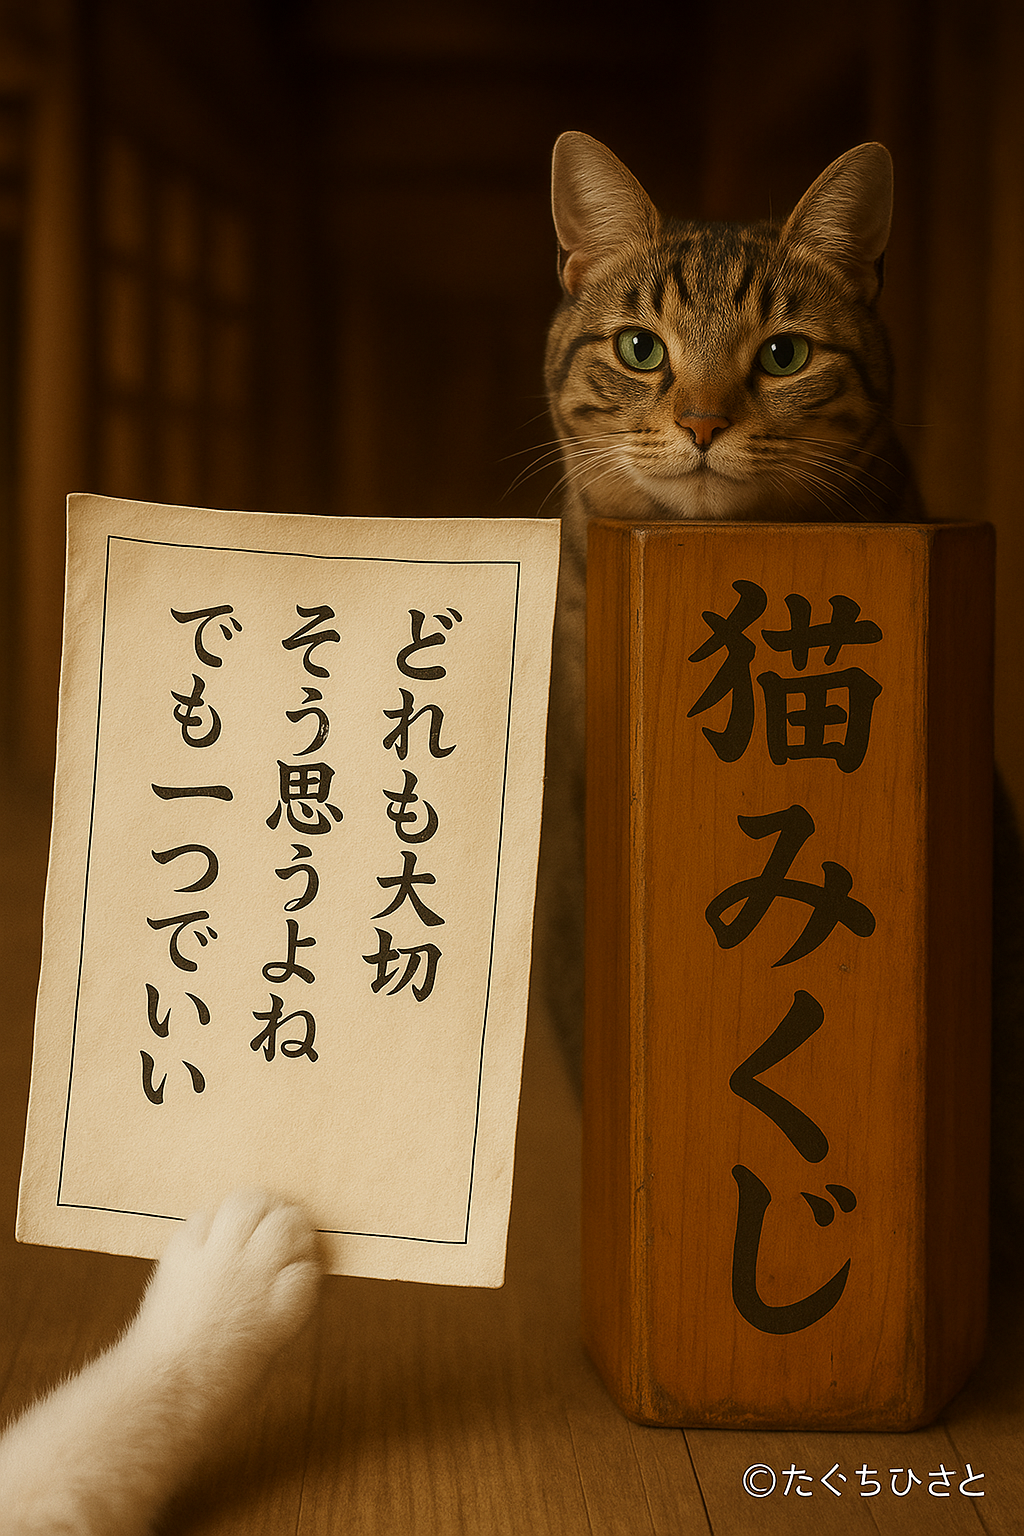 どれも大切
そう思うよね
でも一つでいい
猫みくじ
©たぐちひさと